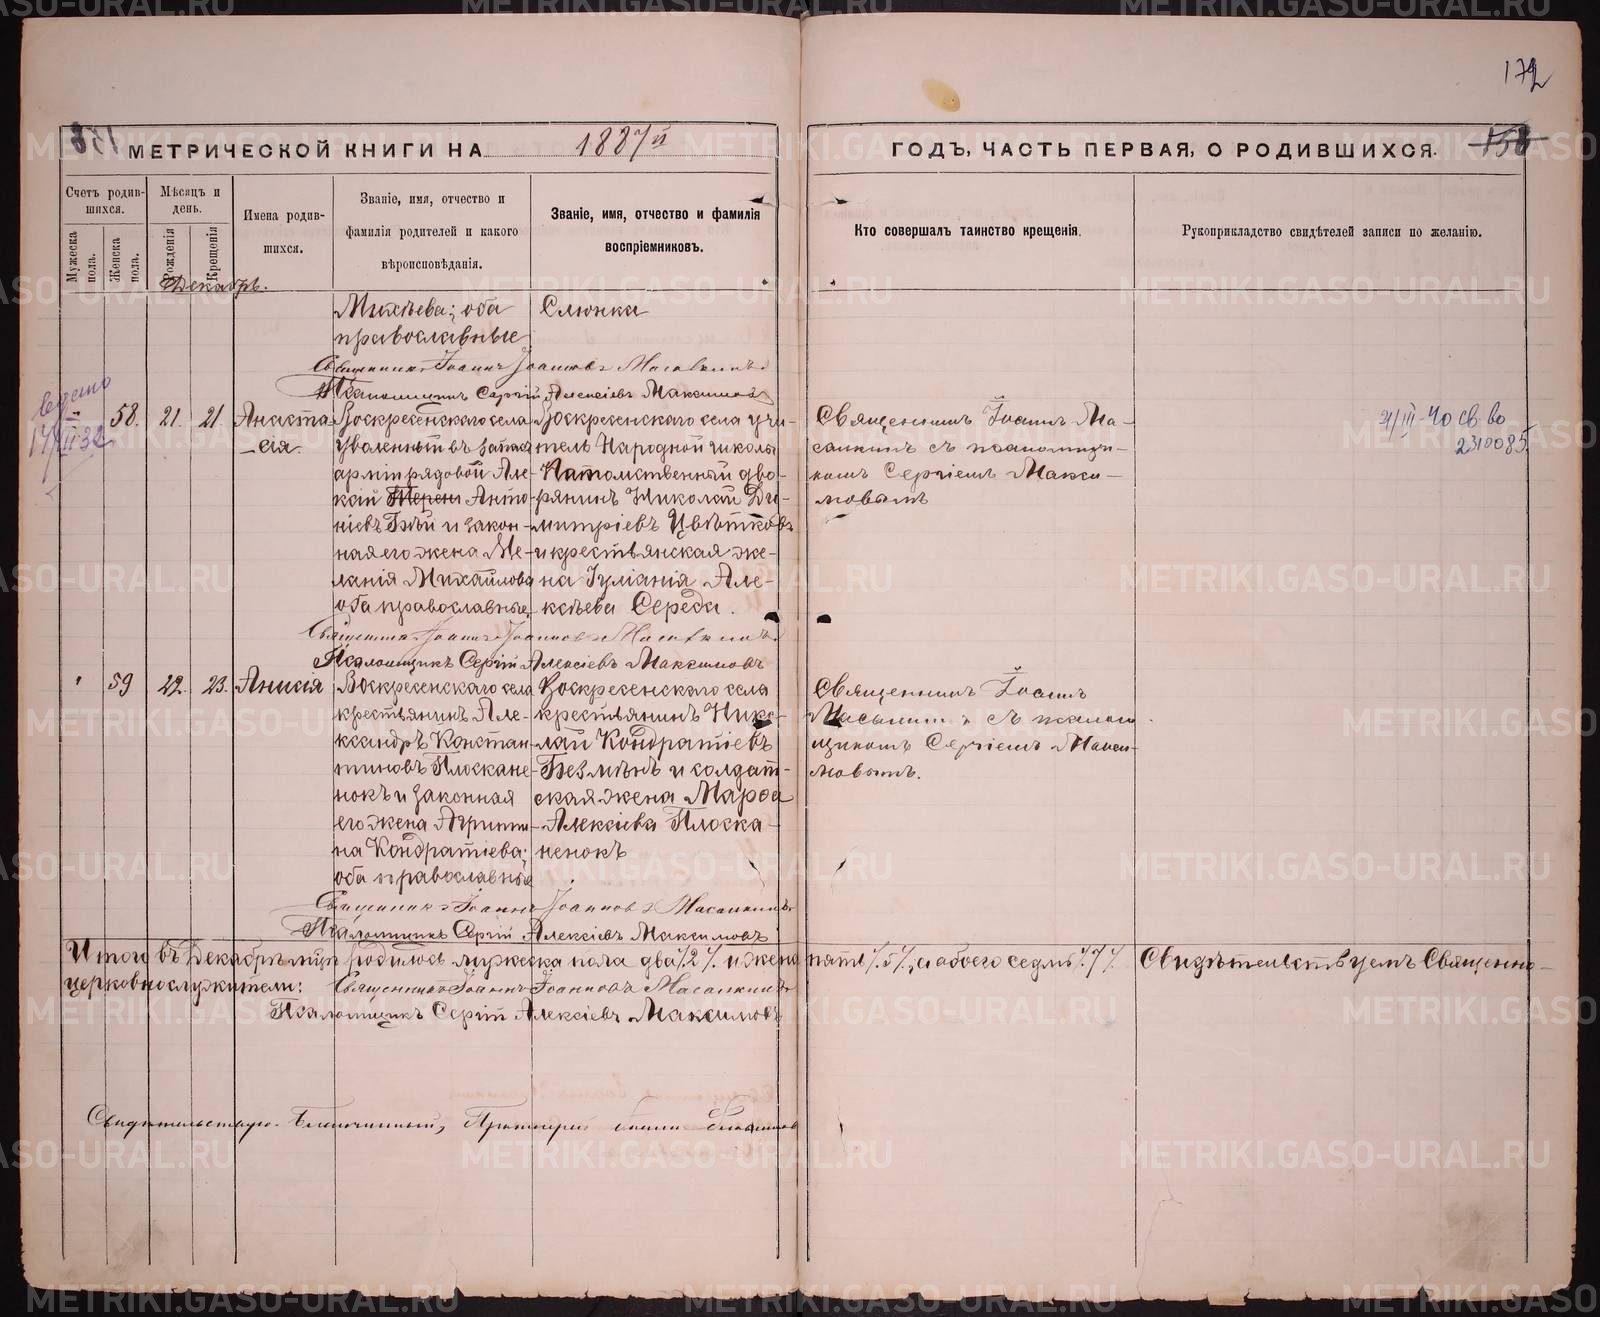 172
МЕТРИЧЕСКОЙ КНИГИ НА 1887й
ГОДЪ, ЧАСТЬ ПЕРВАЯ, О РОДИВШИХСЯ.
158
Счетъ родив-
шихся.
Мужеска пола.
Женска пола.
Мѣсяцъ и
день.
Рожденія
Крещенія
Имена родив-
шихся.
Званіе, имя, отчество и
фамилія родителей и какого
вѣроисповѣданія.
Званіе, имя, отчество и фамилія
воспріемниковъ.
Кто совершалъ таинство крещенія.
Рукоприкладство свидѣтелей записи по желанію.
Декабрь.
Михѣева; оба
православные
Слюнка
Священникъ Іоаннъ Іоанновъ Масалкинъ
Псаломщикъ Сергій Алексіевъ Максимовъ
58. 21. 21. Анаста-
сія.
Воскресенскаго села
Уволенный въ запасъ
арміи рядовой Але-
ксій Анто-
ніевъ Бѣй и закон-
ная его жена Ме-
ланія Михайлова
оба православные
Воскресенскаго села учи-
тель Народной школы
Потомственный дво-
рянинъ Николай Ди-
митріевъ Цвѣтковъ
и крестьянская же-
на Іуліанія Але-
ксѣева Середа.
Священникъ Іоаннъ Ма-
салкинъ съ псаломщи-
комъ Сергіемъ Макси-
мовымъ
4/III-40 св-во
2310085
Священникъ Іоаннъ Іоанновъ Масалкинъ
Псаломщикъ Сергій Алексіевъ Максимовъ
59 22. 23. Анисія
Воскресенскаго села
крестьянинъ Але-
ксандръ Констан-
тиновъ Плоскане-
нокъ и законная
его жена Агриппи-
на Кондратіева;
оба православные
Воскресенскаго села
крестьянинъ Нико-
лай Кондратіевъ
Безмѣнъ и солдат-
ская жена Марфа
Алексіева Плоска-
ненокъ
Священникъ Іоаннъ
Масалкинъ съ псалом-
щикомъ Сергіемъ Макси-
мовымъ.
Священникъ Іоаннъ Іоанновъ Масалкинъ
Псаломщикъ Сергій Алексіевъ Максимовъ
Итого въ Декабрѣ мцѣ родилось мужеска пола два /.2./. и женс. пять /.5./., и обоего седмь /.7./. Свидѣтельствуемъ Священно-
церковнослужители: Священникъ Іоаннъ Іоанновъ Масалкинъ
Псаломщикъ Сергій Алексіевъ Максимовъ
Свидѣтельствую. Благочинный, Протоіерей
METRIKI.GASO-URAL.RU